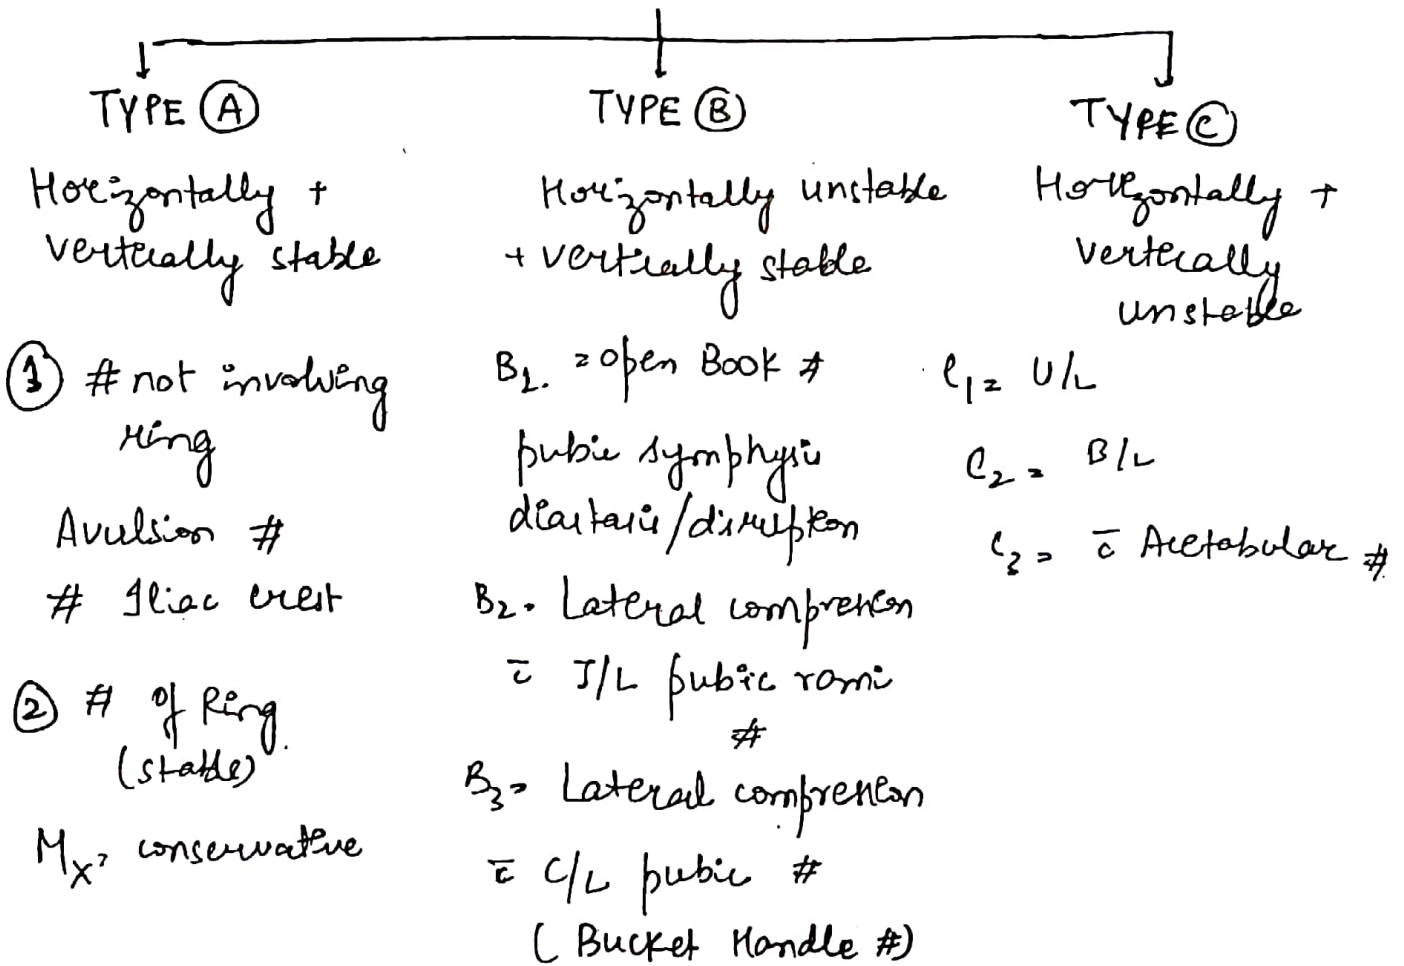 TYPE A
Horizontally +
vertically stable
1 # not involving
ring
Avulsion #
# Iliac crest
2 # of Ring
(stable)
Mx = conservative
TYPE B
Horizontally unstable
+ vertically stable
B1. = open Book #
pubic symphysis
diastasis/disruption
B2. Lateral compression
c̄ I/L pubic rami
#
B3 = Lateral compression
c̄ C/L pubic #
( Bucket Handle #)
TYPE C
Horizontally +
vertically
unstable
C1 = U/L
C2 = B/L
C3 = c̄ Acetabular #